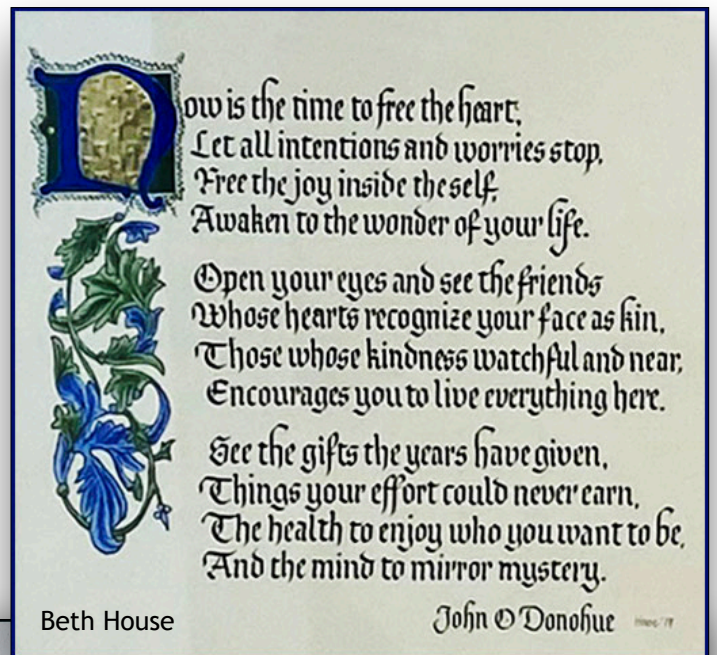 Now is the time to free the heart,
Let all intentions and worries stop,
Free the joy inside the self,
Awaken to the wonder of your life.
Open your eyes and see the friends
Whose hearts recognize your face as kin,
Those whose kindness watchful and near,
Encourages you to live everything here.
See the gifts the years have given,
Things your effort could never earn,
The health to enjoy who you want to be,
And the mind to mirror mystery.
John O Donohue
Beth House